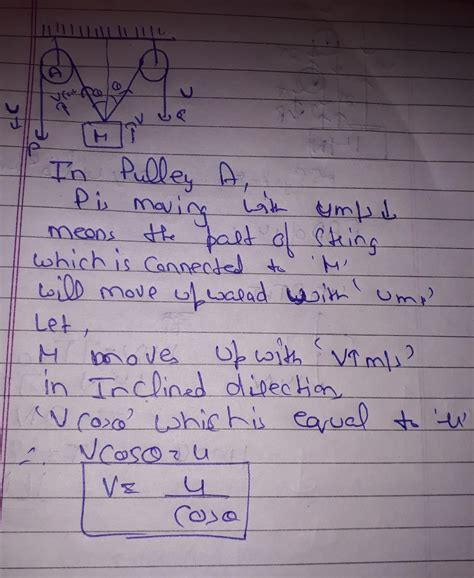 A
θ θ
v cosθ
u
u
v
P
M
Q
In Pulley A,
P is moving with um/s ↓
means the part of string
which is connected to 'M'
will move upwarad with 'um/s'
Let,
M moves up with 'V↑m/s'
in Inclined direction
'V cosθ' which is equal to 'u'
∴ Vcosθ = u
V = u
cosθ